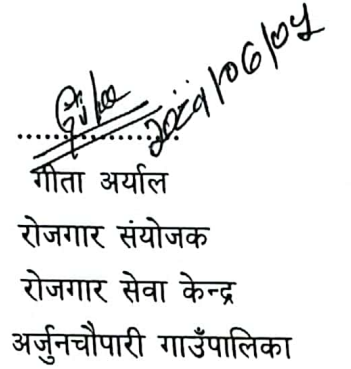 गीता अर्याल
रोजगार संयोजक
रोजगार सेवा केन्द्र
अर्जुनचौपारी गाउँपालिका